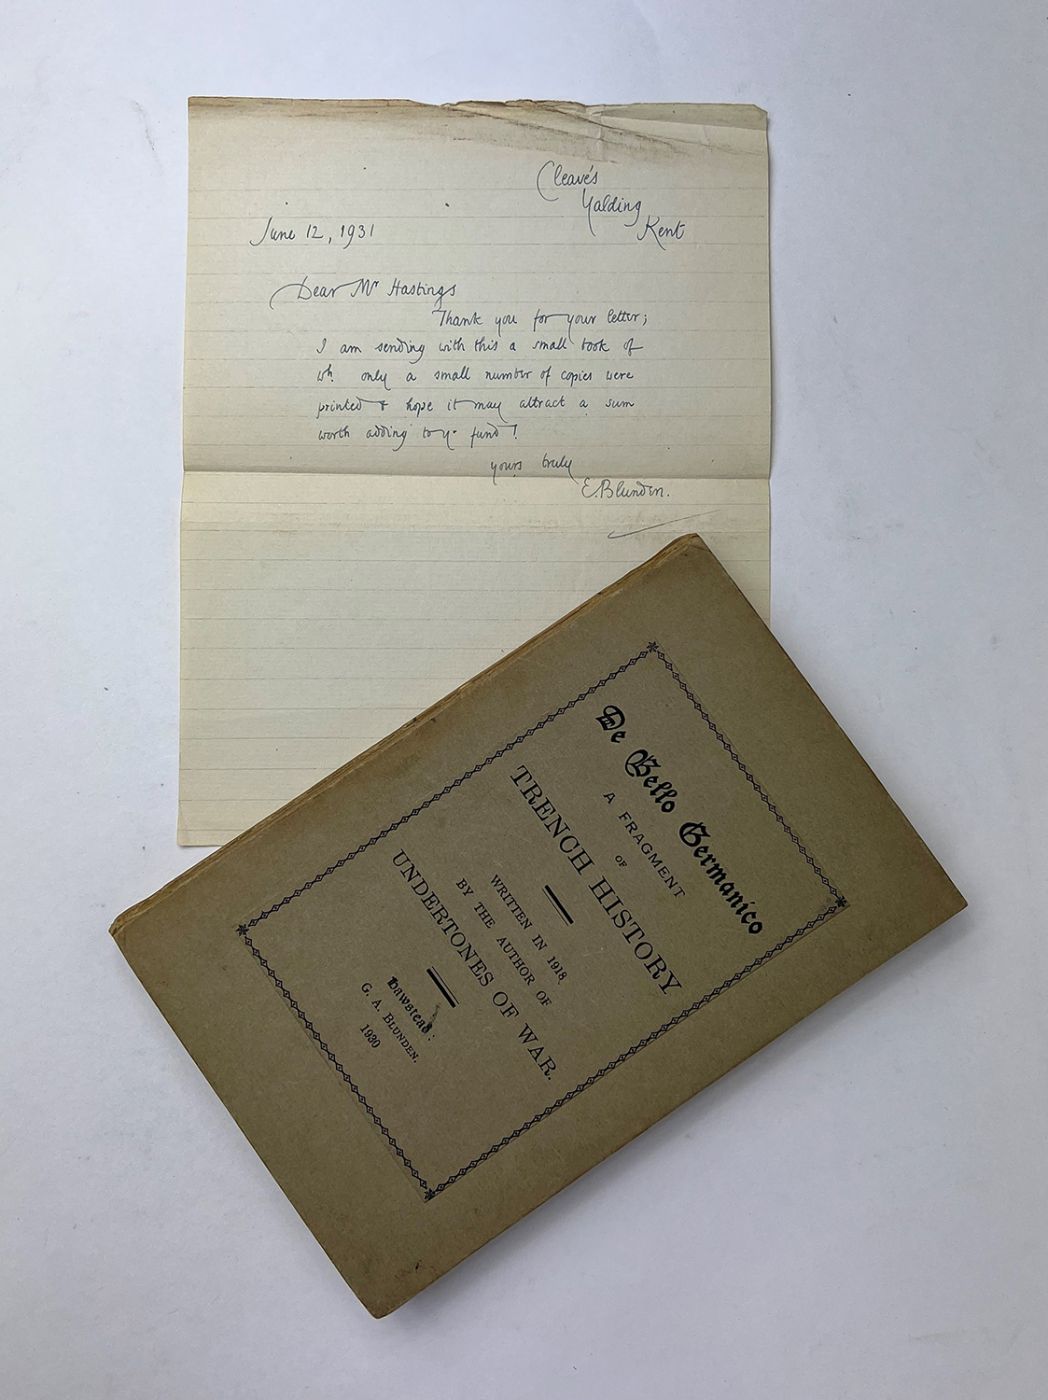 Cleave's
Yalding
Kent
June 12, 1931
Dear Mr Hastings
Thank you for your letter;
I am sending with this a small book of
wh. only a small number of copies were
printed & hope it may attract a sum
worth adding to yr fund!
yours truly
E. Blunden.
De Bello Germanico
A FRAGMENT
OF
TRENCH HISTORY
WRITTEN IN 1918
BY THE AUTHOR OF
UNDERTONES OF WAR.
Hawstead:
G. A. BLUNDEN.
1930